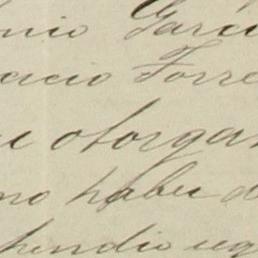 onio Garci
acio Torre
e otorgan
no haber d
hendio